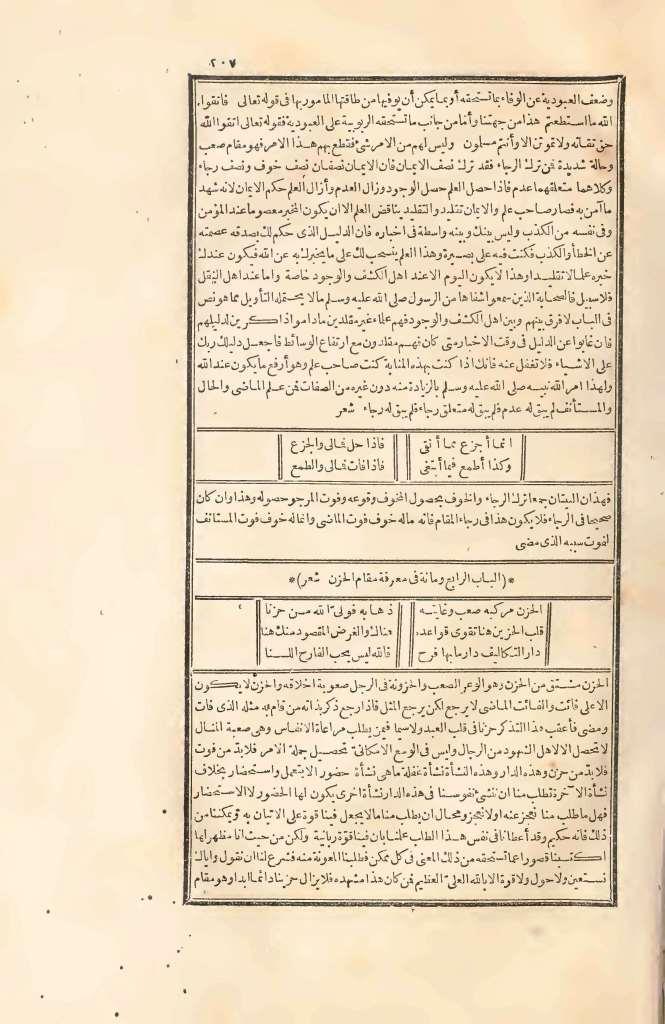 ٢٠٧
وضعف العبودية عن الوفاء بما تستحقه أو بما يمكن أن يوفيها من طاقتها المأمور بها فى قوله تعالى فاتقوا
الله ما استطعتم هذا من جهتنا وأما من جانب ما تستحقه الربوبية على العبودية فقوله تعالى اتقوا الله
حق تقاته ولا تموتن الا وأنتم مسلمون وليس لهم من الامر شئ فقطع بهم هذا الامر فهو مقام صعب
وحالة شديدة فمن ترك الرجاء فقد ترك نصف الايمان فان الايمان نصفان نصف خوف ونصف رجاء
وكلاهما متعلقهما عدم فاذا حصل العلم حصل الوجود وزال العدم وأزال العلم حكم الايمان لانه شهد
ما آمن به فصار صاحب علم والايمان تقليد والتقليد يناقض العلم الا ان يكون المخبر معصوما عند المؤمن
وفى نفسه من الكذب وليس بينك وبينه واسطة فى اخباره فان الدليل الذى حكم لك بصدقه عصمته
عن الخطأ والكذب فكنت فيه على بصيرة وهذا العلم ينسحب لك على ما يخبرك به عن الله فيكون عندك
خبره علما لا تقليدا وهذا لا يكون اليوم الا عند اهل الكشف والوجود خاصة واما عند اهل النقل
فلا سبيل فالصحابة الذين سمعوا شفاها من الرسول صلى الله عليه وسلم ما لا يحتمله التأويل مما هو نص
فى الباب لا فرق بينهم وبين اهل الكشف والوجود فهم علماء غير مقلدين ما داموا ذاكرين لدليلهم
فان غابوا عن الدليل فى وقت الاخبار متى كان فهم مقلدون مع ارتفاع الوسائط فاجعل دليلك ربك
على الاشياء فلا تغفل عنه فانك اذا كنت بهذه المثابة كنت صاحب علم وهو أرفع ما يكون عند الله
ولهذا امر الله نبيه صلى الله عليه وسلم بالزيادة منه دون غيره من الصفات فمن علم الماضى والحال
والمستأنف لم يبق له عدم فلم يبق له متعلق رجاء فلم يبق له رجاء شعر
انما أجزع مما أتقى فاذا حل فمالى والجزع
وكذا أطمع فيما أبتغى فاذا فات فمالى والطمع
فهذان البيتان جمعا ترك الرجاء والخوف بحصول المخوف وقوعه وفوت المرجو حصوله وهذا وان كان
صحيحا فى الرجاء فلا يكون هذا فى رجاء المقام فانه ماله خوف فوت الماضى وانما له خوف فوت المستانف
لفوت سببه الذى مضى
*(الباب الرابع ومائة فى معرفة مقام الحزن شعر)*
الحزن مركبه صعب وغايته ذهابه فولىّ الله من حزنا
قلب الحزين هنا تقوى قواعده هناك والغرض المقصود منك هنا
دار التكاليف دار ما بها فرح فالله ليس يحب الفارح اللسنا
الحزن مشتق من الحزن وهو الوعر الصعب والحزونة فى الرجل صعوبة اخلاقه والحزن لا يكون
الا على فائت والفائت الماضى لا يرجع لكن يرجع المثل فاذا رجع ذكر بذاته من قام به مثله الذى فات
ومضى فأعقب هذا التذكر حزنا فى قلب العبد ولا سيما فيمن يطلب مراعاة الانفاس وهى صعبة المنال
لا تحصل الا لاهل الشهود من الرجال وليس فى الوسع الامكانى تحصيل جملة الامر فلا بدّ من فوت
فلا بدّ من حزن وهذه الدار وهذه النشأة نشأة غفلة ما هى نشأة حضور الا بتعمل واستحضار بخلاف
نشأة الآخرة فطلب منا ان ننشئ نفوسنا فى هذه الدار نشأة اخرى يكون لها الحضور لا الاستحضار
فهل ما طلب منا نعجز عنه او لا نعجز ومحال ان يطلب منا ما لا يجعل فينا قوة على الاتيان به تمكننا من
ذلك فانه حكيم وقد أعطانا فى نفس هذا الطلب علمنا بان فينا قوة ربانية ولكن من حيث انا مظهر لها
اكتسبنا قصورا عما تستحقه من ذلك المعنى فى كل ممكن فطلبنا المعونة منه فشرع لنا ان نقول واياك
نستعين ولا حول ولا قوة الا بالله العلىّ العظيم فمن كان هذا مشهده فلا يزال حزينا دائما ابدا وهو مقام